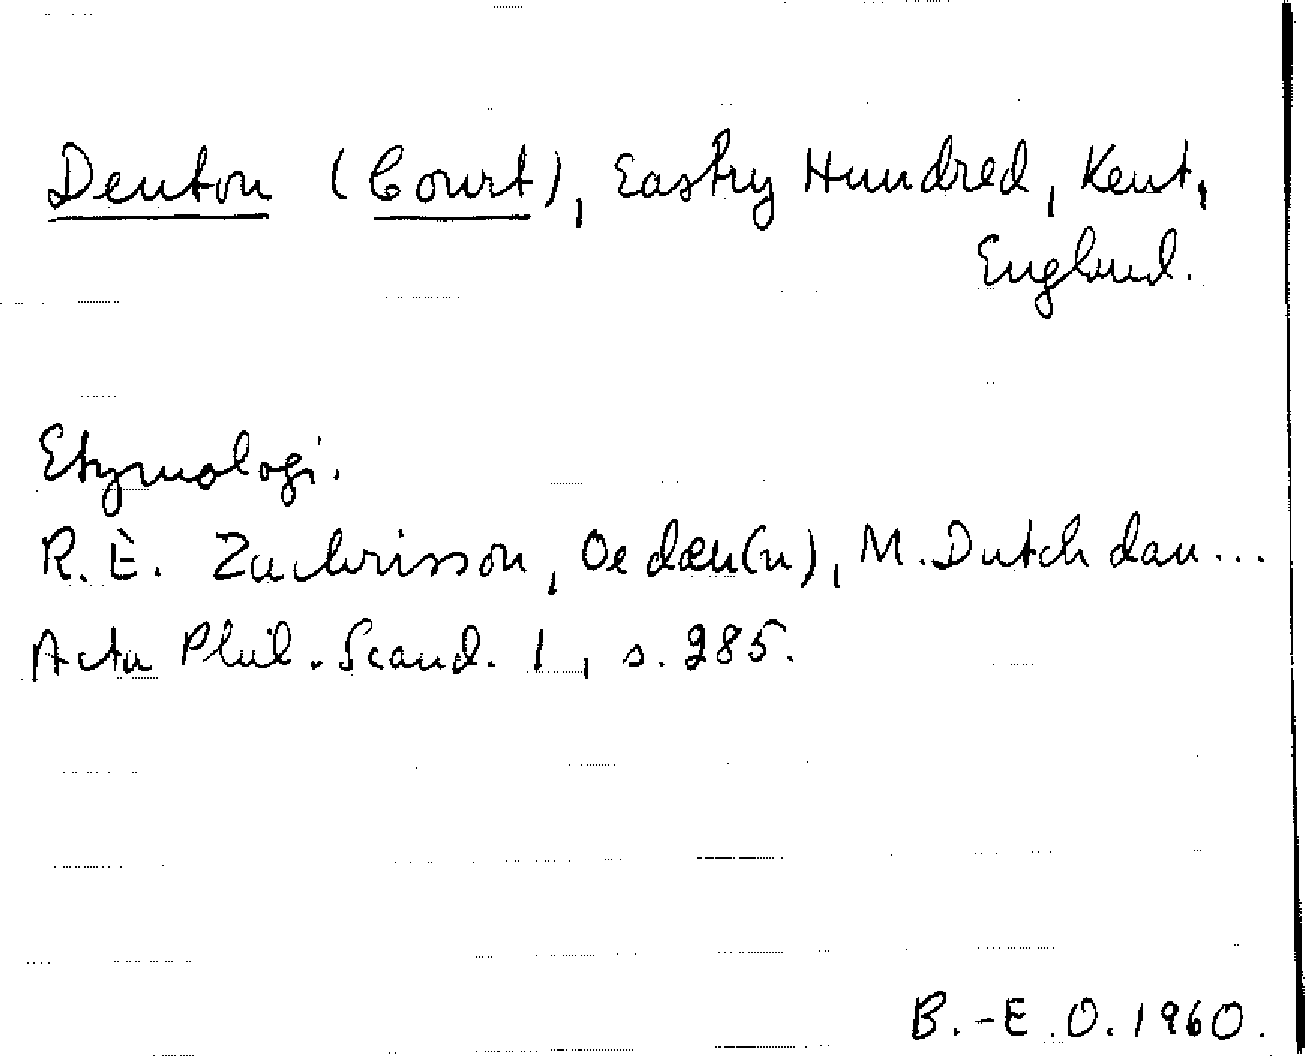 Denton (Court), Eastry Hundred, Kent,
England.
Etymologi.
R.E. Zachrisson, Oe dæn(n), M.Dutch dan...
Acta Phil. Scand. 1, s. 285.
B.-E.O. 1960.